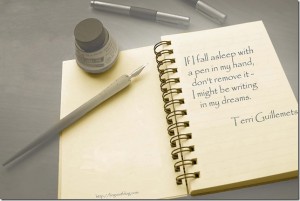 If I fall asleep with
a pen in my hand,
don't remove it -
I might be writing
in my dreams.
Terri Guillemets